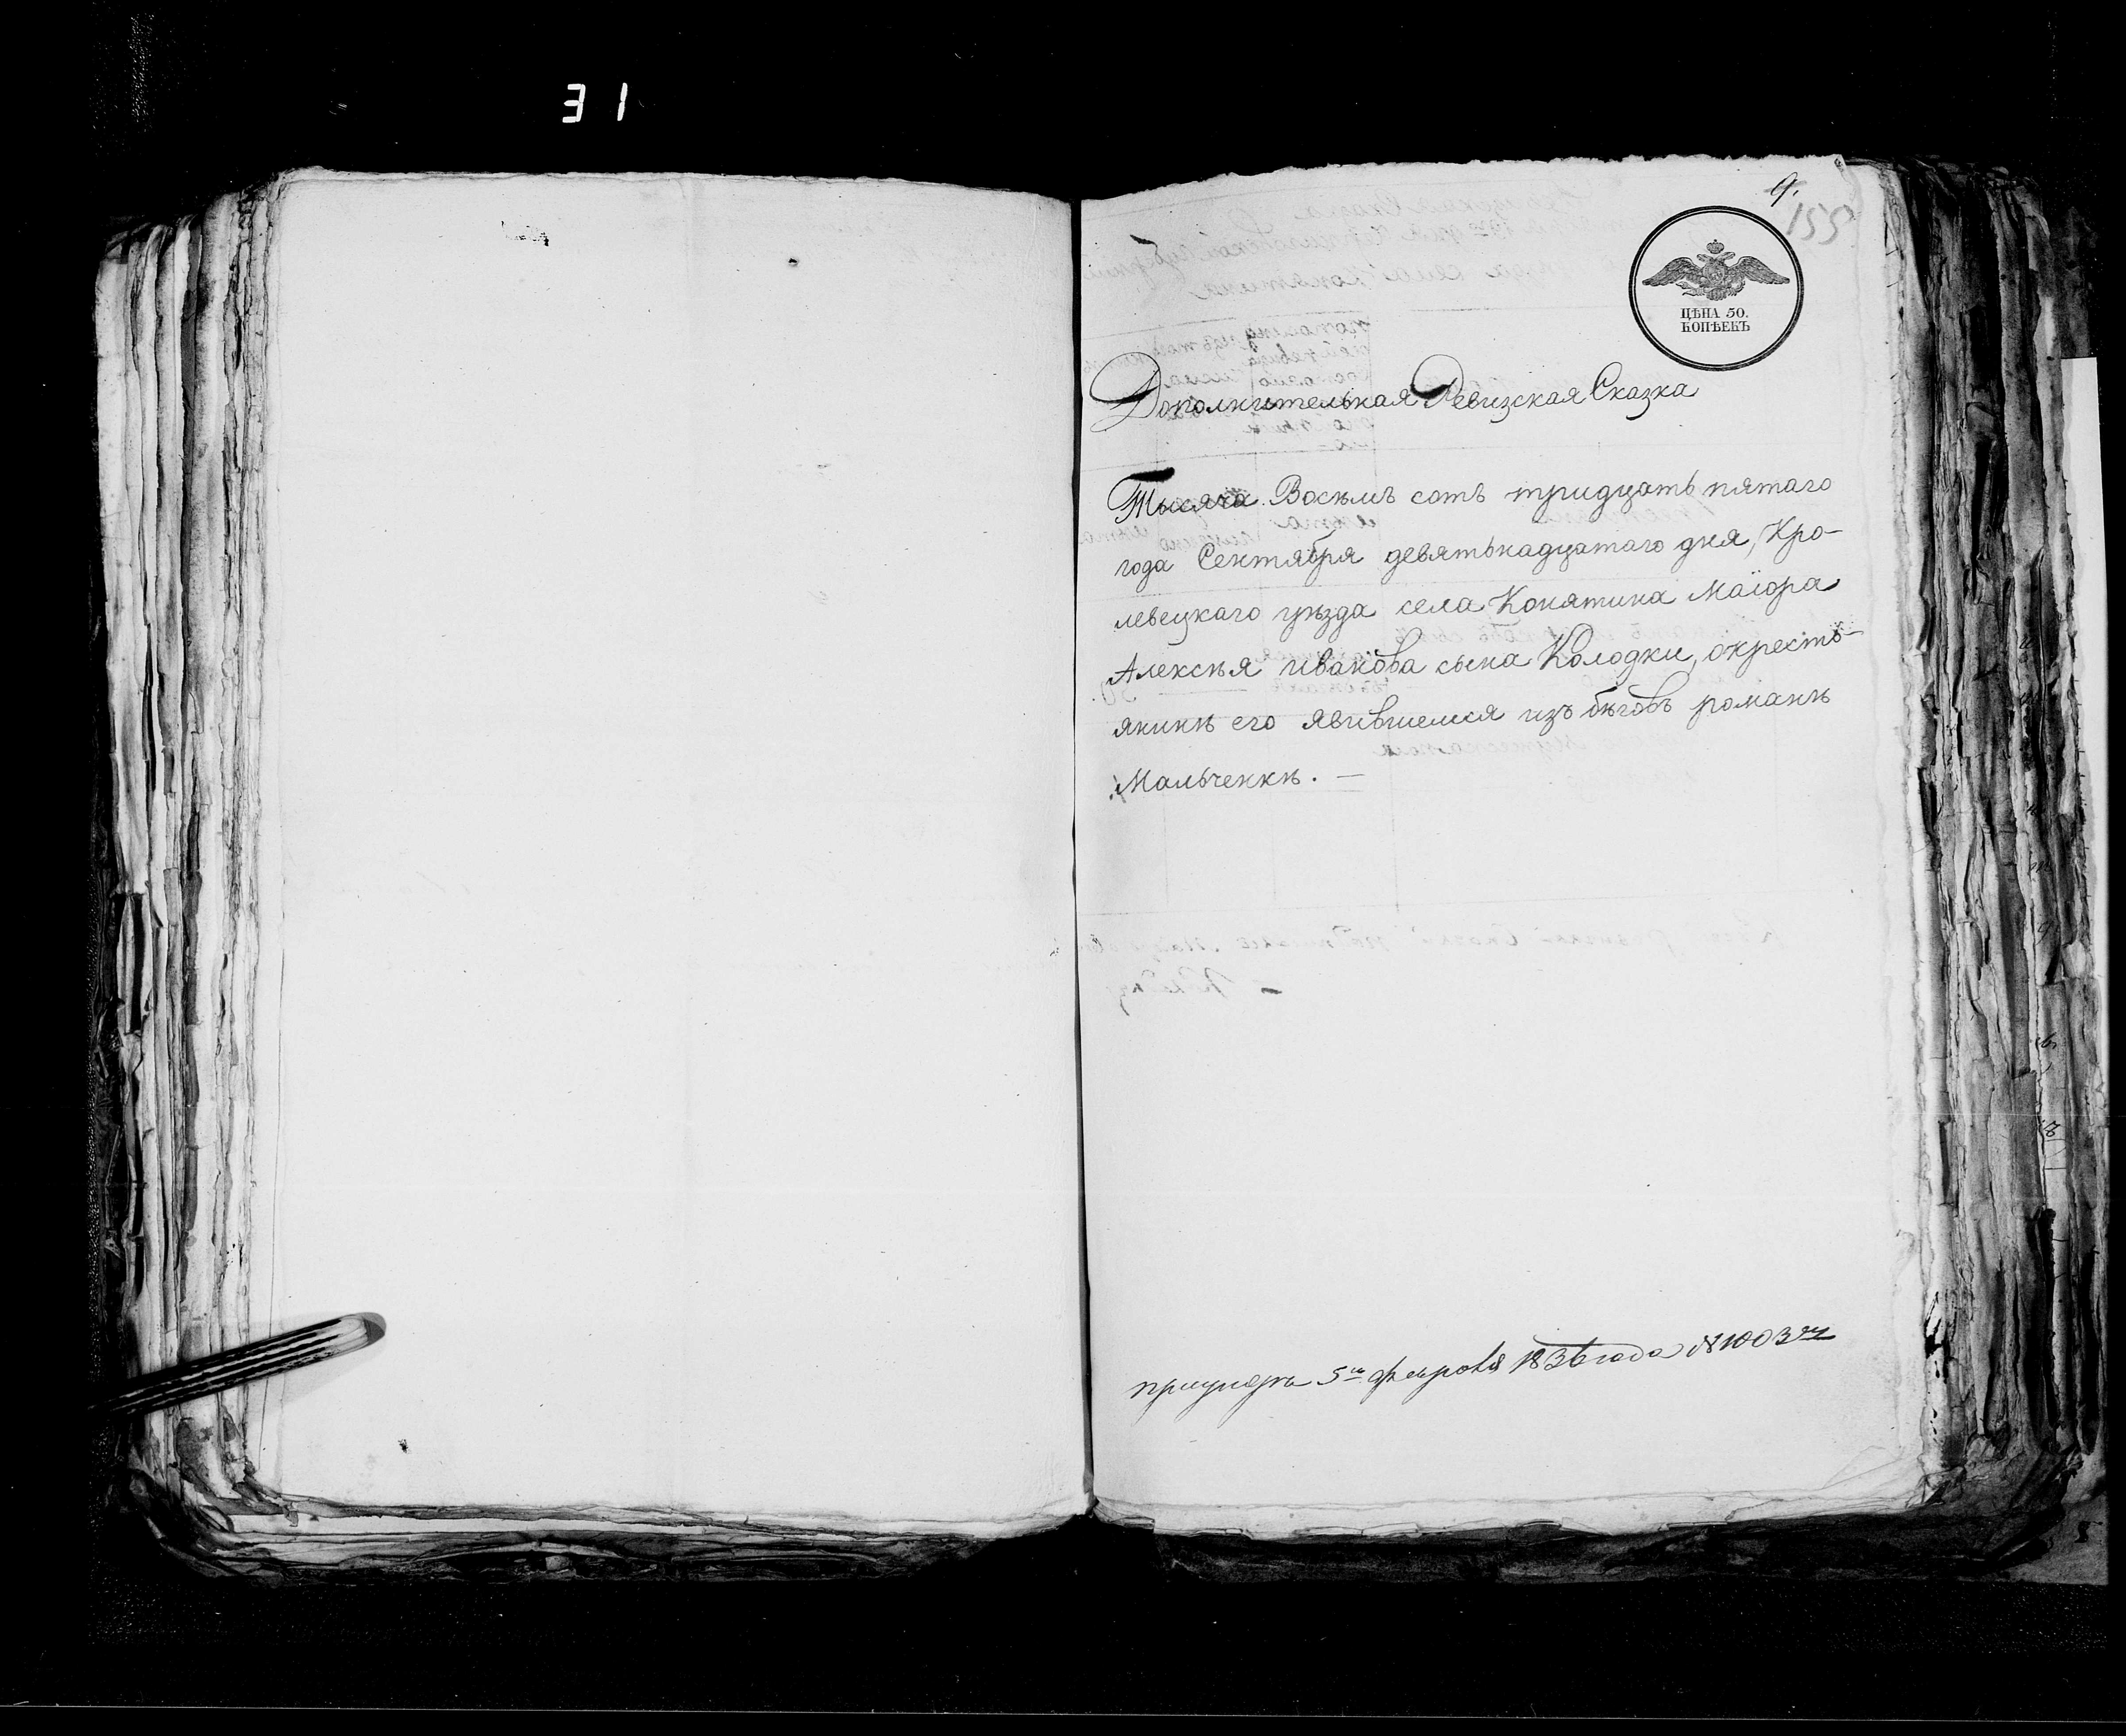 31
9.
155
ЦѢНА 50.
КОПѢЕКЪ
Дополнительная Ревизская Сказка
Тысяча Восѣмъ сотъ тридцать пятаго
года Сентября девятьнадцатаго дня, Кро-
левецкаго уѣзда села Конятина Маіора
Алексѣя иванова сына Колодки, окресть-
янинѣ его явившемся изъ бѣговъ романѣ
Мальченкѣ. —
5го февраля 1836 года №1003